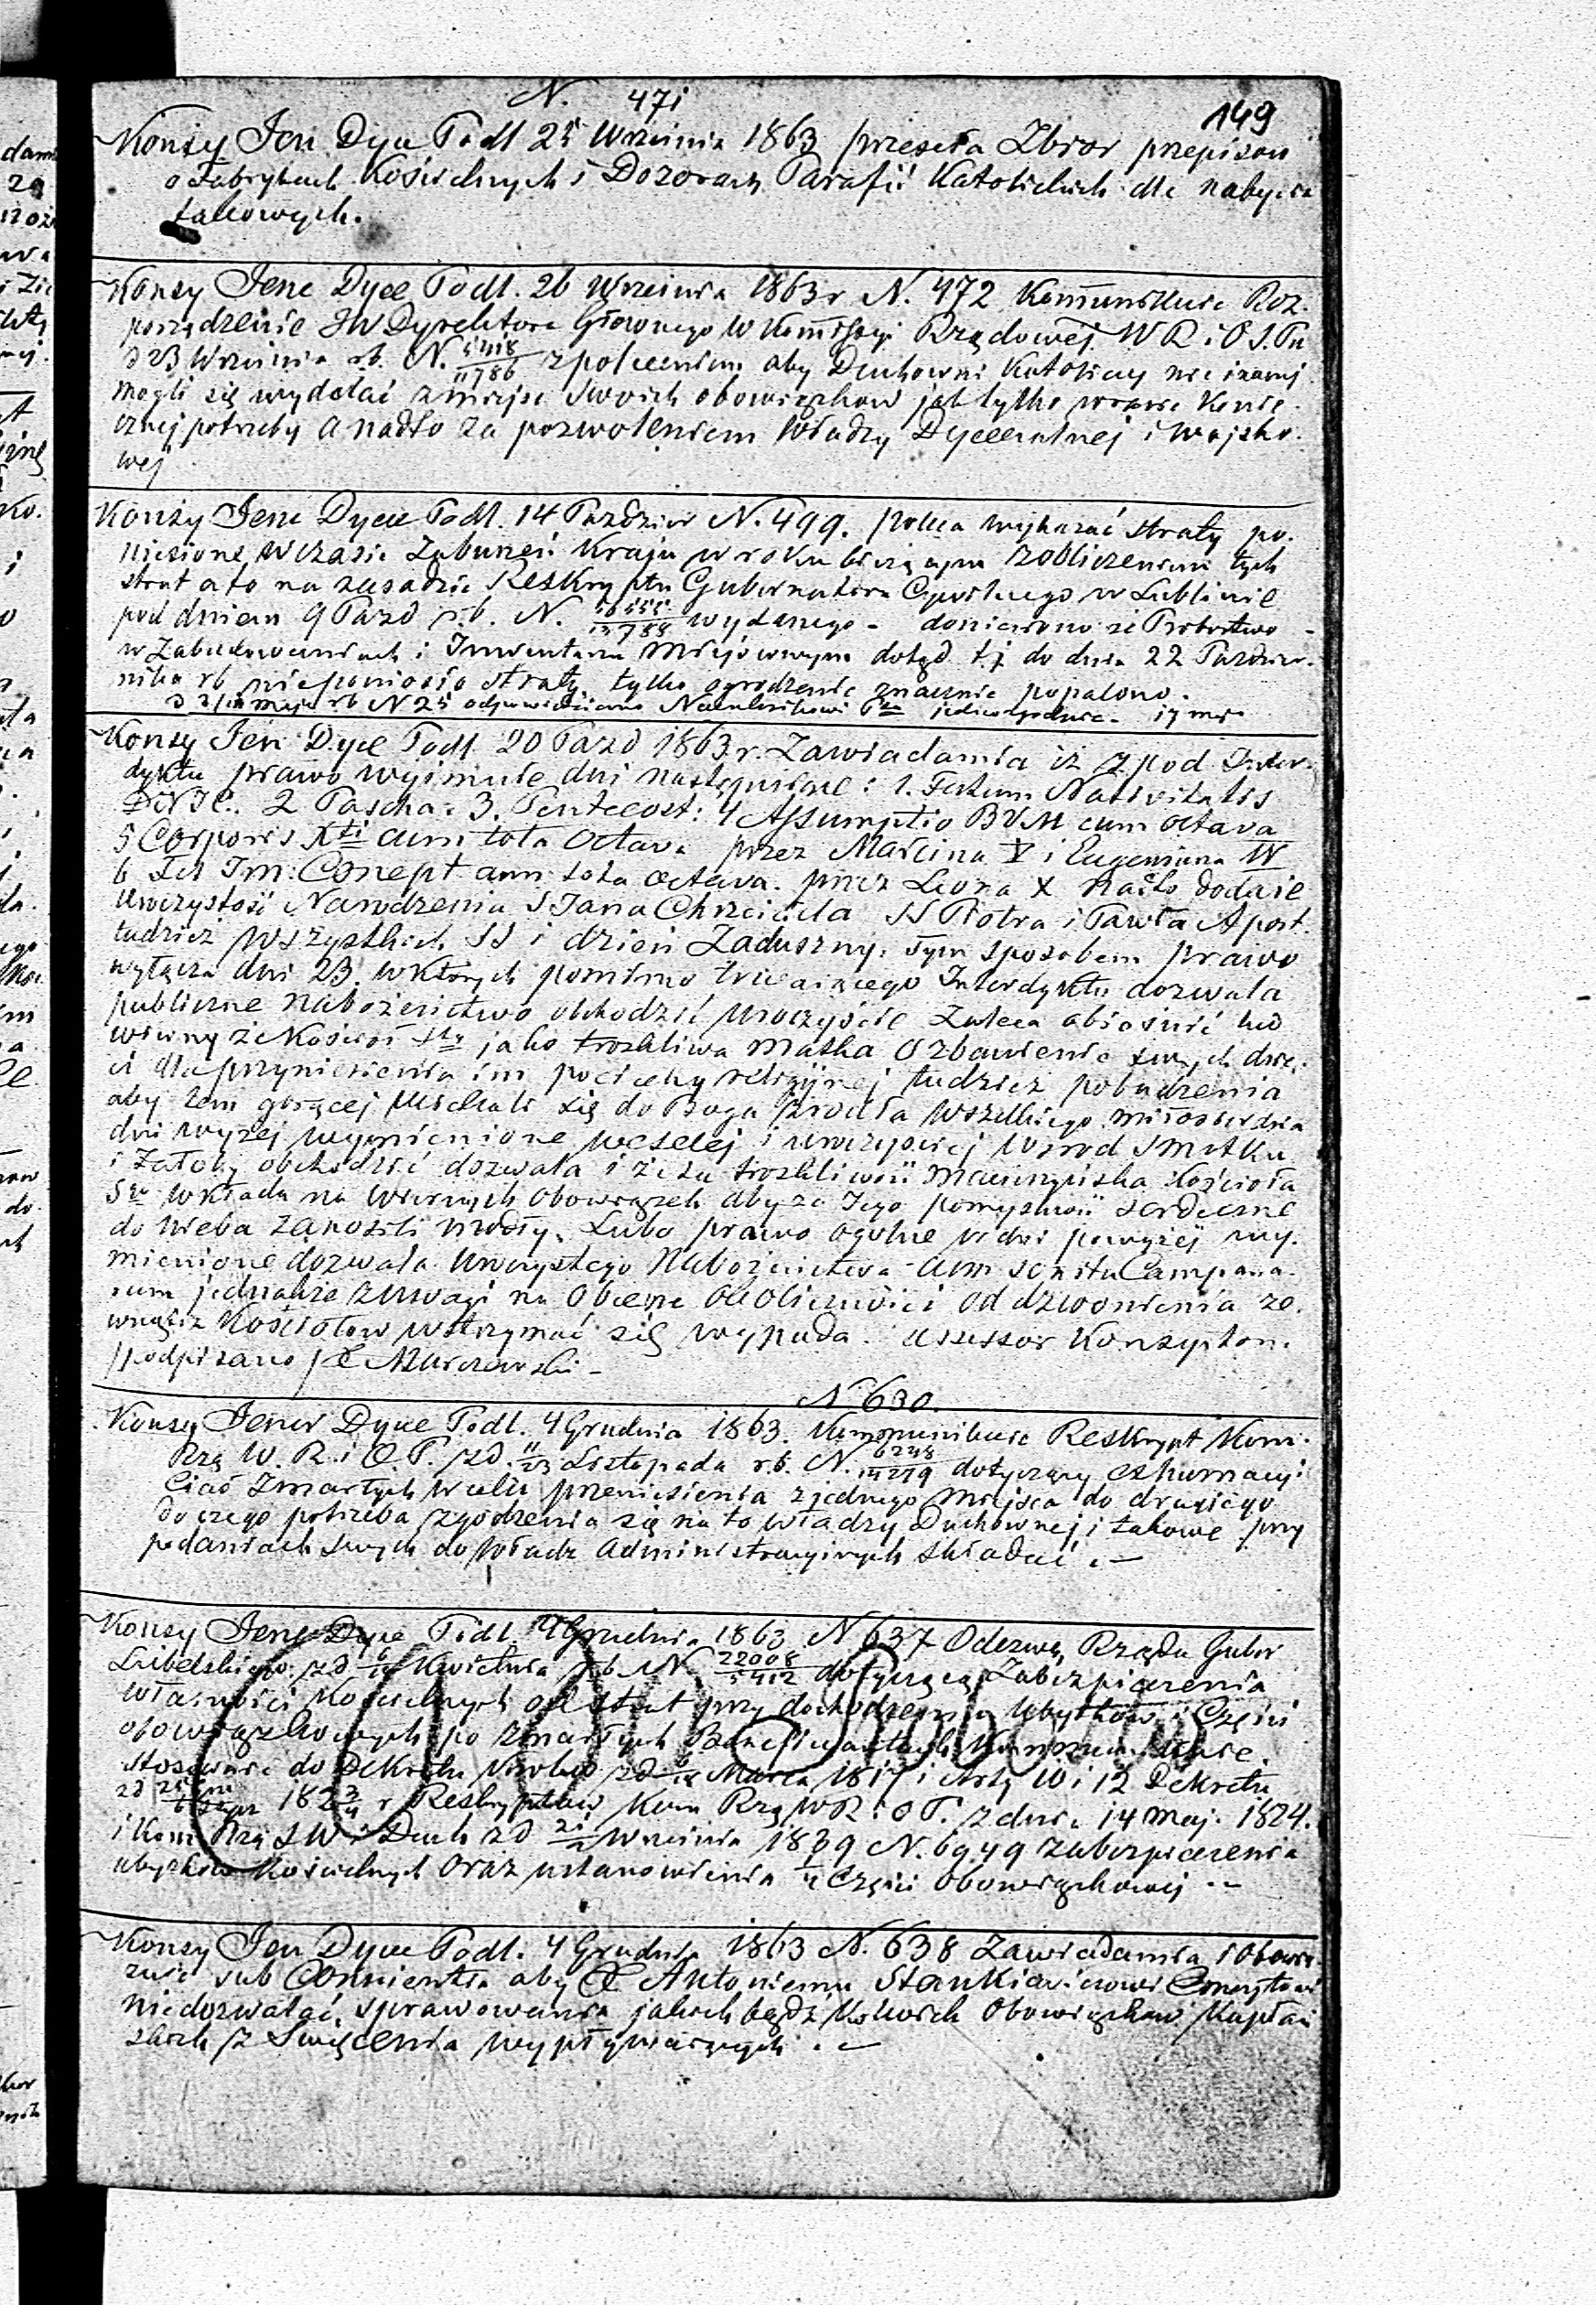 N. 471
149
Konsy Jen Dyce Podl 25 Września 1863 przeseła Zbior przepisow
o Fabrykach Kościelnych i Dozorach Parafii Katolickich dla nabycia
takowych.
Konsy Jene Dyce Podl. 26 Września 1863 r N. 472 Kommunikuie Roz.
porządzenie JW Dyrektora Głownego w Kommissyi Rządowej W R i O P.
d 23 Września rb. N. 5418/11786 z poleceniem aby Duchowni Katoliccy nie inaczej
mogli się wydalać z miejsc swoich obowiązkow jak tylko w razie konie.
cznej potrzeby a nadto za pozwoleniem Władzy Dyecezalnej i wojsko.
wej
Konsy Jene Dyce Podl. 14 Paździer N. 499. poleca wykazać straty po.
niesione w czasie Zaburzeń Kraju w roku bieżącym z obliczeniem tych
strat a to na zasadzie Reskryptu Gubernatora Cywilnego w Lublinie
pod dniem 9 Pazd r.b. N. wydanego - doniesiono że Probostwo
w Zabudowaniach i Inwentarzu Miejscowym dotąd t.j do dnia 22 Paździer.
nika rb nieponiosło straty, tylko ogrodzenie znacznie popalono.
maja rb N 25 odpowiedziano Naczelnikowi
Konsy Jen Dyce Podl 20 Pazd 1863 r. Zawiadamia iż z pod Inter.
dyktu prawo wyimuie dni następuiące: 1. Festum Nativitatis
DNJC. 2 Pascha: 3. Pentecost: 4 Assumptio BVM cum octava
5 Corporis Xti cum tota Octava przez Marcina V i Eugeniusza IV
6 Fest Im: Concept cum tota octava. przez Leona X nadto dodaie
Uroczystość Narodzenia S Jana Chrzciciela SS Piotra i Pawła Apost.
tudzież Wszystkich SS i dzień Zaduszny, tym sposobem prawo
wyłącza dni 23 w których pomimo trwaiącego Interdyktu dozwala
publiczne nabożeństwo obchodzić uroczyście Zaleca obiaśnić lud
wierny że Kościoł Sty jako troskliwa Matka o zbawienie swych dzie.
ci dla przyniesienia im pociechy religijnej tudzież pobudzenia
aby tem goręcej uciekali się do Boga źrodła wszelkiego miłosierdzia
dni wyżej wymienione weselej i uroczyściej wsrod smutku
i żałoby obchodzić dozwala i że ta troskliwość Macierzyńska Kościoła
Sgo wkłada na wiernych obowiązek aby za Jego pomyślność serdeczne
do nieba zanosili modły. Lubo prawo ogolne w dni powyżej wy.
mienione dozwala uroczystego Nabożeństwa cum sonitu Campana.
rum jednakże z uwagi na Obecne Okoliczności od dzwonienia ze.
wnątrz Kościołow wstrzymać się wypada. assessor Konsystor.
podpisano X Mzurczewski -
N 630.
Konsy Jener Dyce Podl. 4 Grudnia 1863. Kommunikuie Reskrypt Kom.
Rzą W. R. i O. P. z d. 11/23 Listopada r.b. N. 6248/14279 dotyczący exhumacyi
Ciał Zmarłych w celu przeniesienia z jednego miejsca do drugiego
do czego potrzeba zgodzenia się na to władzy Duchownej i takowe przy
podaniach swych do Władz Administracyinych składać . -
Konsy Jene Dyce Podl. 4 Grudnia 1863 N. 637 Odezwę Rządu Guber
Lubelskiego z d Kwietnia r b N 22008/5412 dotyczącą Zabezpieczenia
własności Kościelnych od strat przy dochodzeniu Ubytkow i Części
obowiązkowych po zmarłych Beneficiantach Kommunikuie.
stosownie do Dekretu Krolew z d Marca 1817 i Arty 10 i 12 Dekretu
zd 1823/4 r Reskryptow Kom Rzą WR i O P. z dnia 14 Maj. 1824.
i Kom Rzą S W i Duch zd Września 1839 N. 6949 zabezpieczenia
ubytkow Kościelnych oraz ustanowienia 1/4 Części Obowiązkowej . -
Konsy Jen Dyce Podl. 4 Grudnia 1863 N. 638 Zawiadamia i obowią
zuie sub Conscientia aby X Antoniemu Stankiewiczowi Emerytowi
niedozwalać sprawowania jakich bądź kolwiek Obowiązkow Kapłań
skich z Święcenia wypływaiących . -